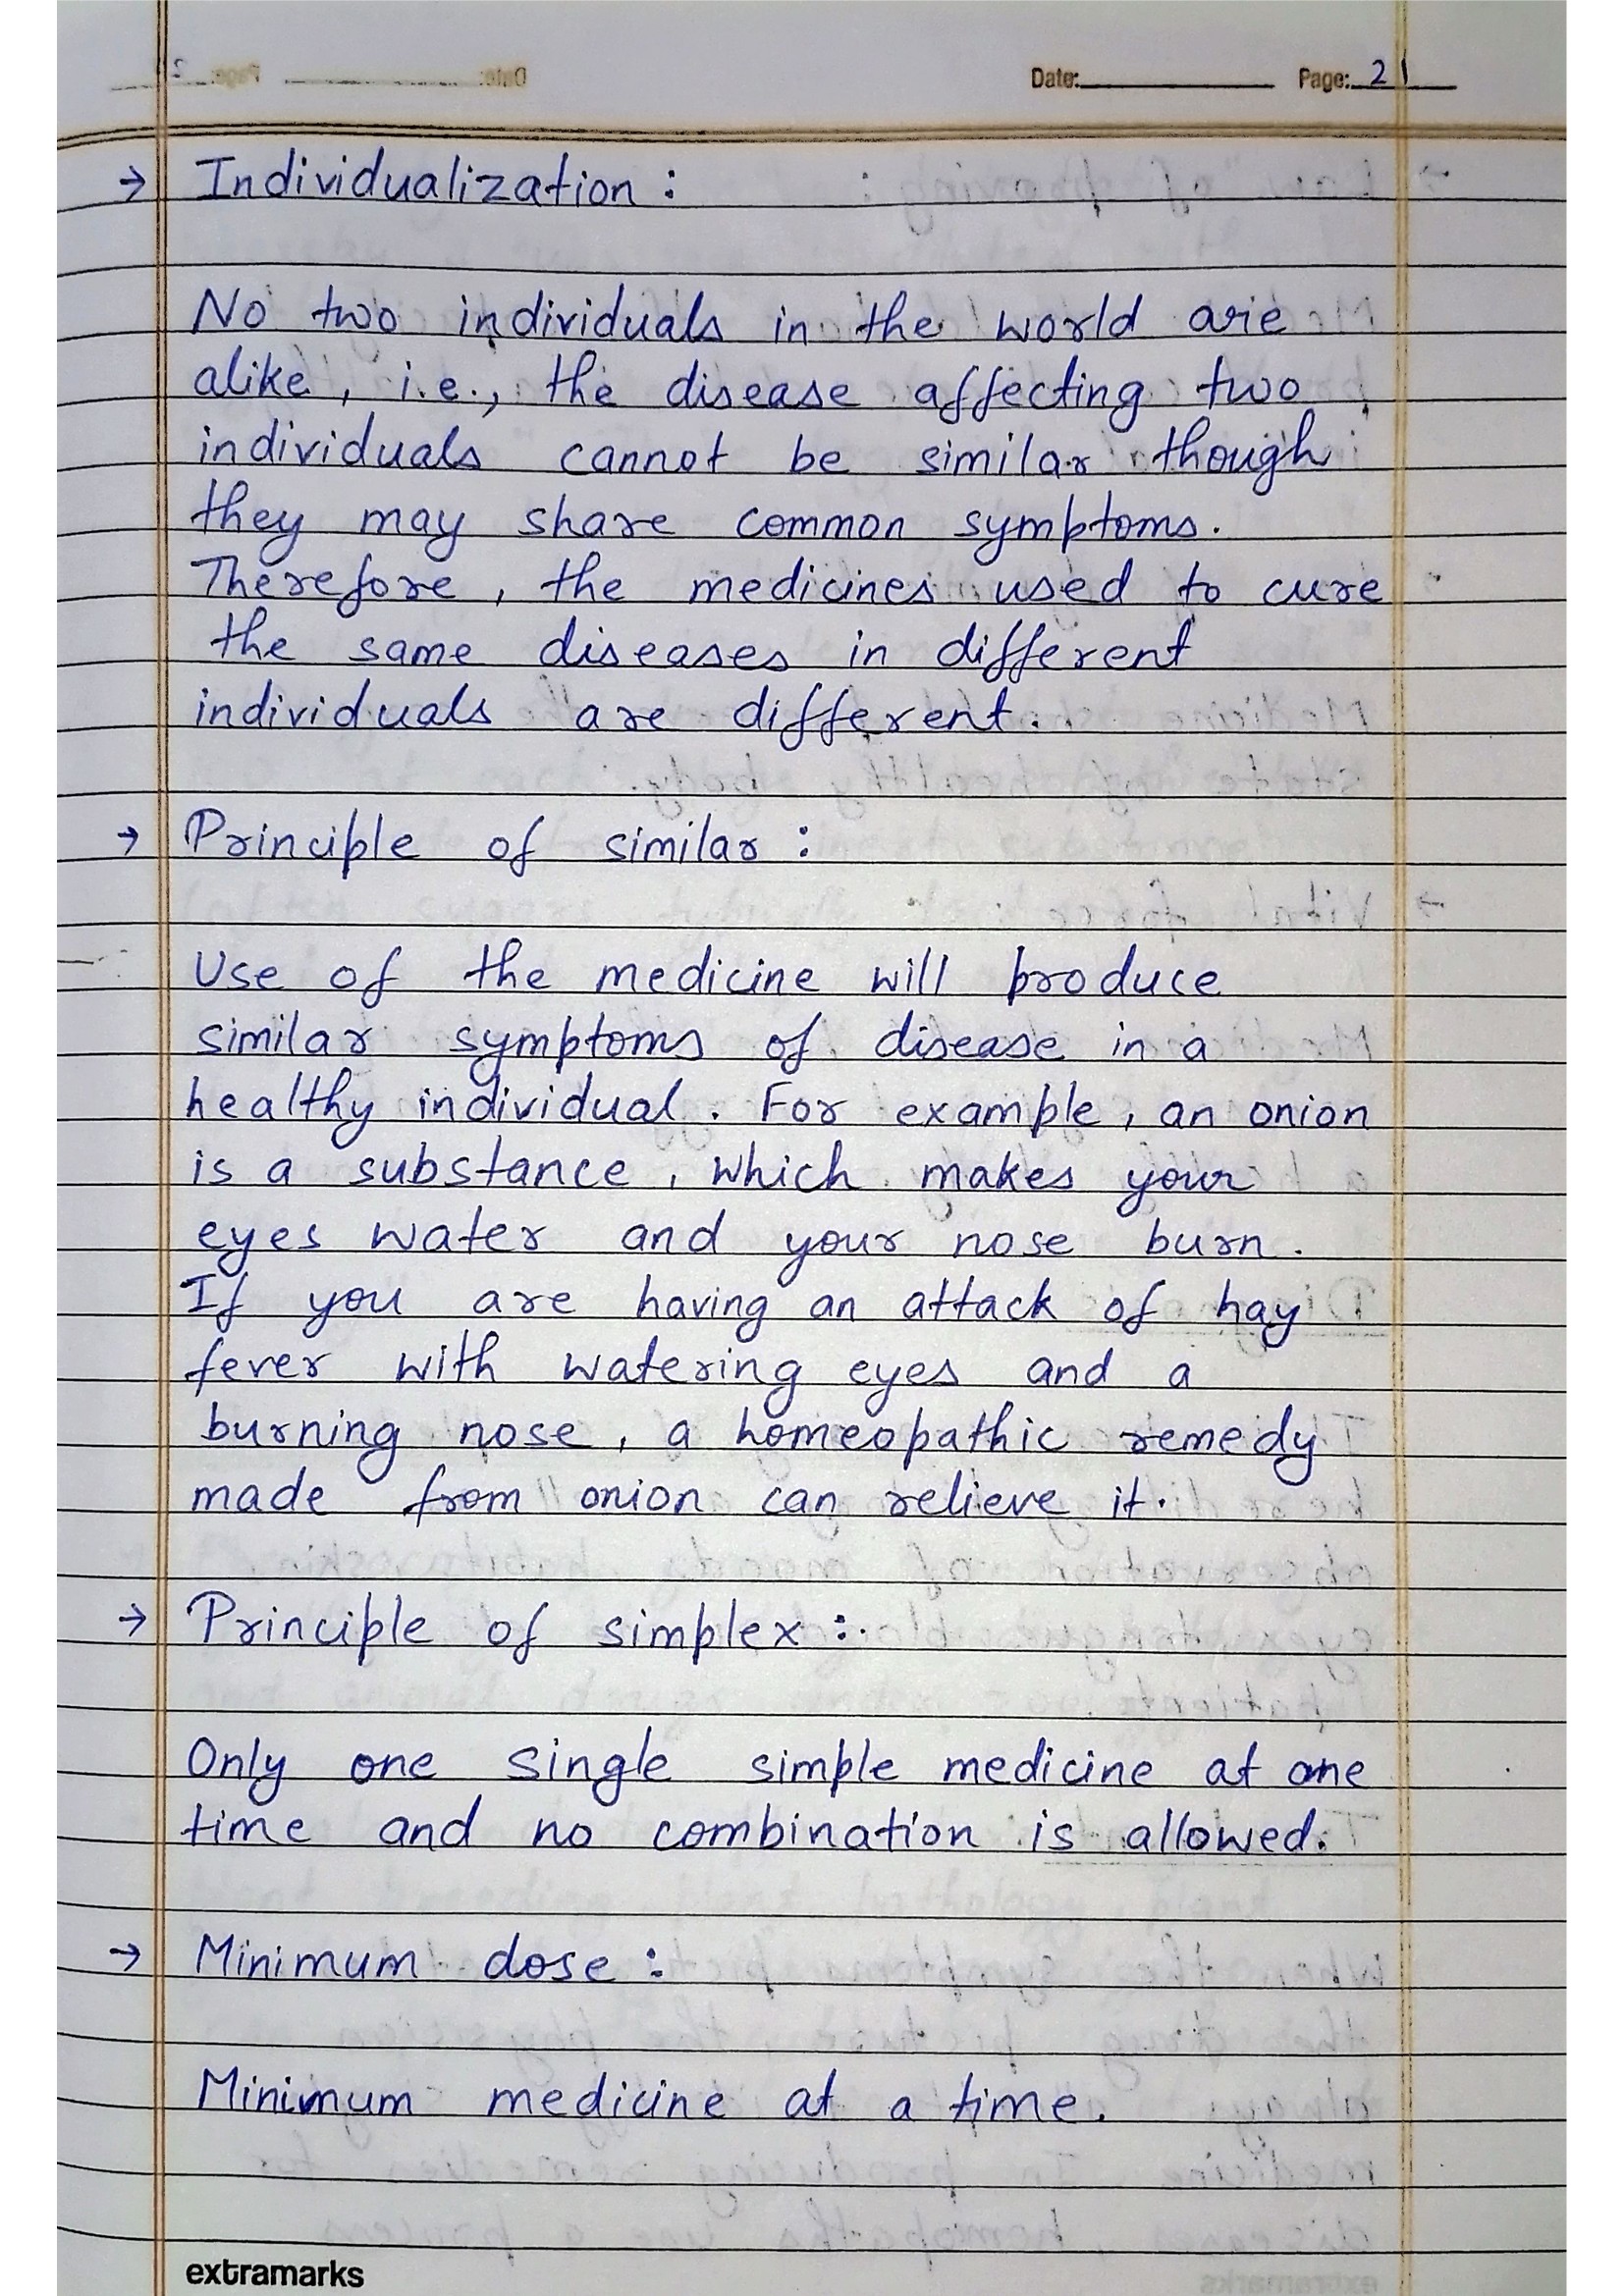 Date: Page: 2
→ Individualization :
No two individuals in the world are
alike, i.e., the disease affecting two
individuals cannot be similar though
they may share common symptoms.
Therefore, the medicines used to cure
the same diseases in different
individuals are different.
→ Principle of similar :
Use of the medicine will produce
similar symptoms of disease in a
healthy individual. For example, an onion
is a substance, which makes your
eyes water and your nose burn.
If you are having an attack of hay
fever with watering eyes and a
burning nose, a homeopathic remedy
made from onion can relieve it.
→ Principle of simplex :
Only one single simple medicine at one
time and no combination is allowed.
→ Minimum dose :
Minimum medicine at a time.
extramarks